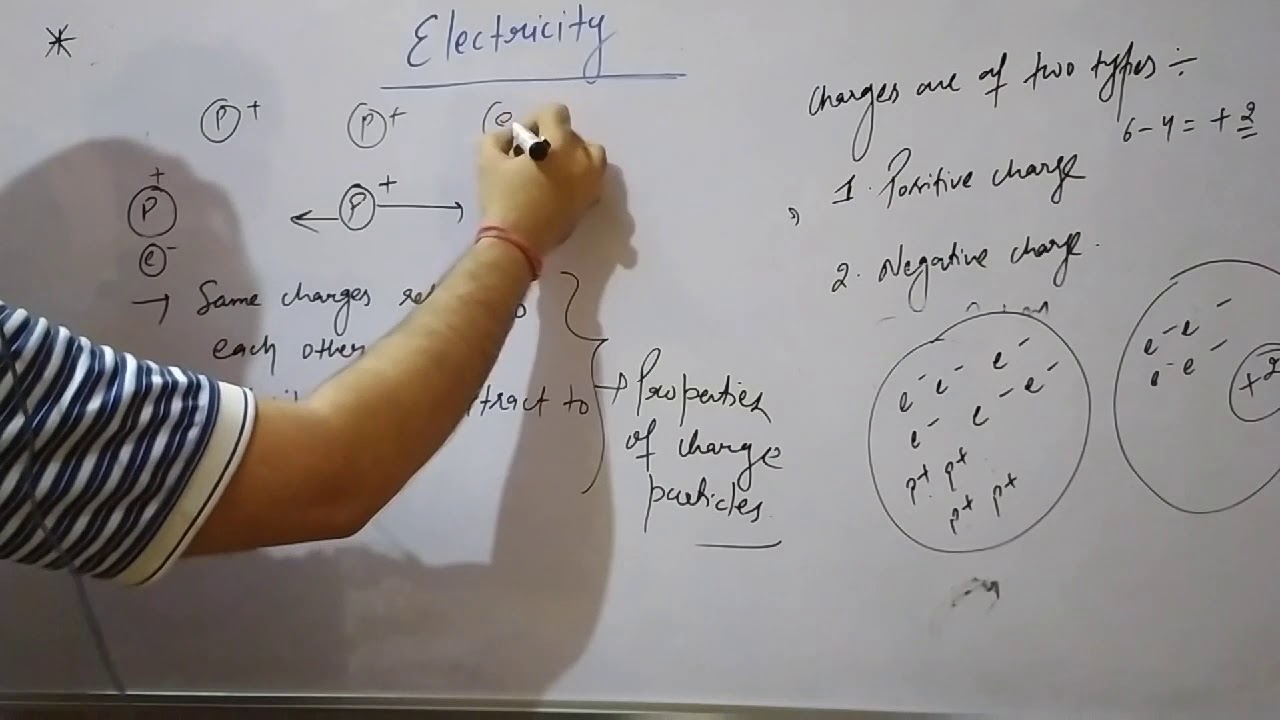 *
Electricity
P+ P+ e
P+ P+
e-
→ Same charges
each other
tract to
→ Properties
of charge
particles
Charges are of two types ÷
6-4 = +2
1. Positive charge
2. Negative charge.
e- e- e-
e- e- e-
e-
p+ p+
p+ p+
e- e- -
e- e- -
+2